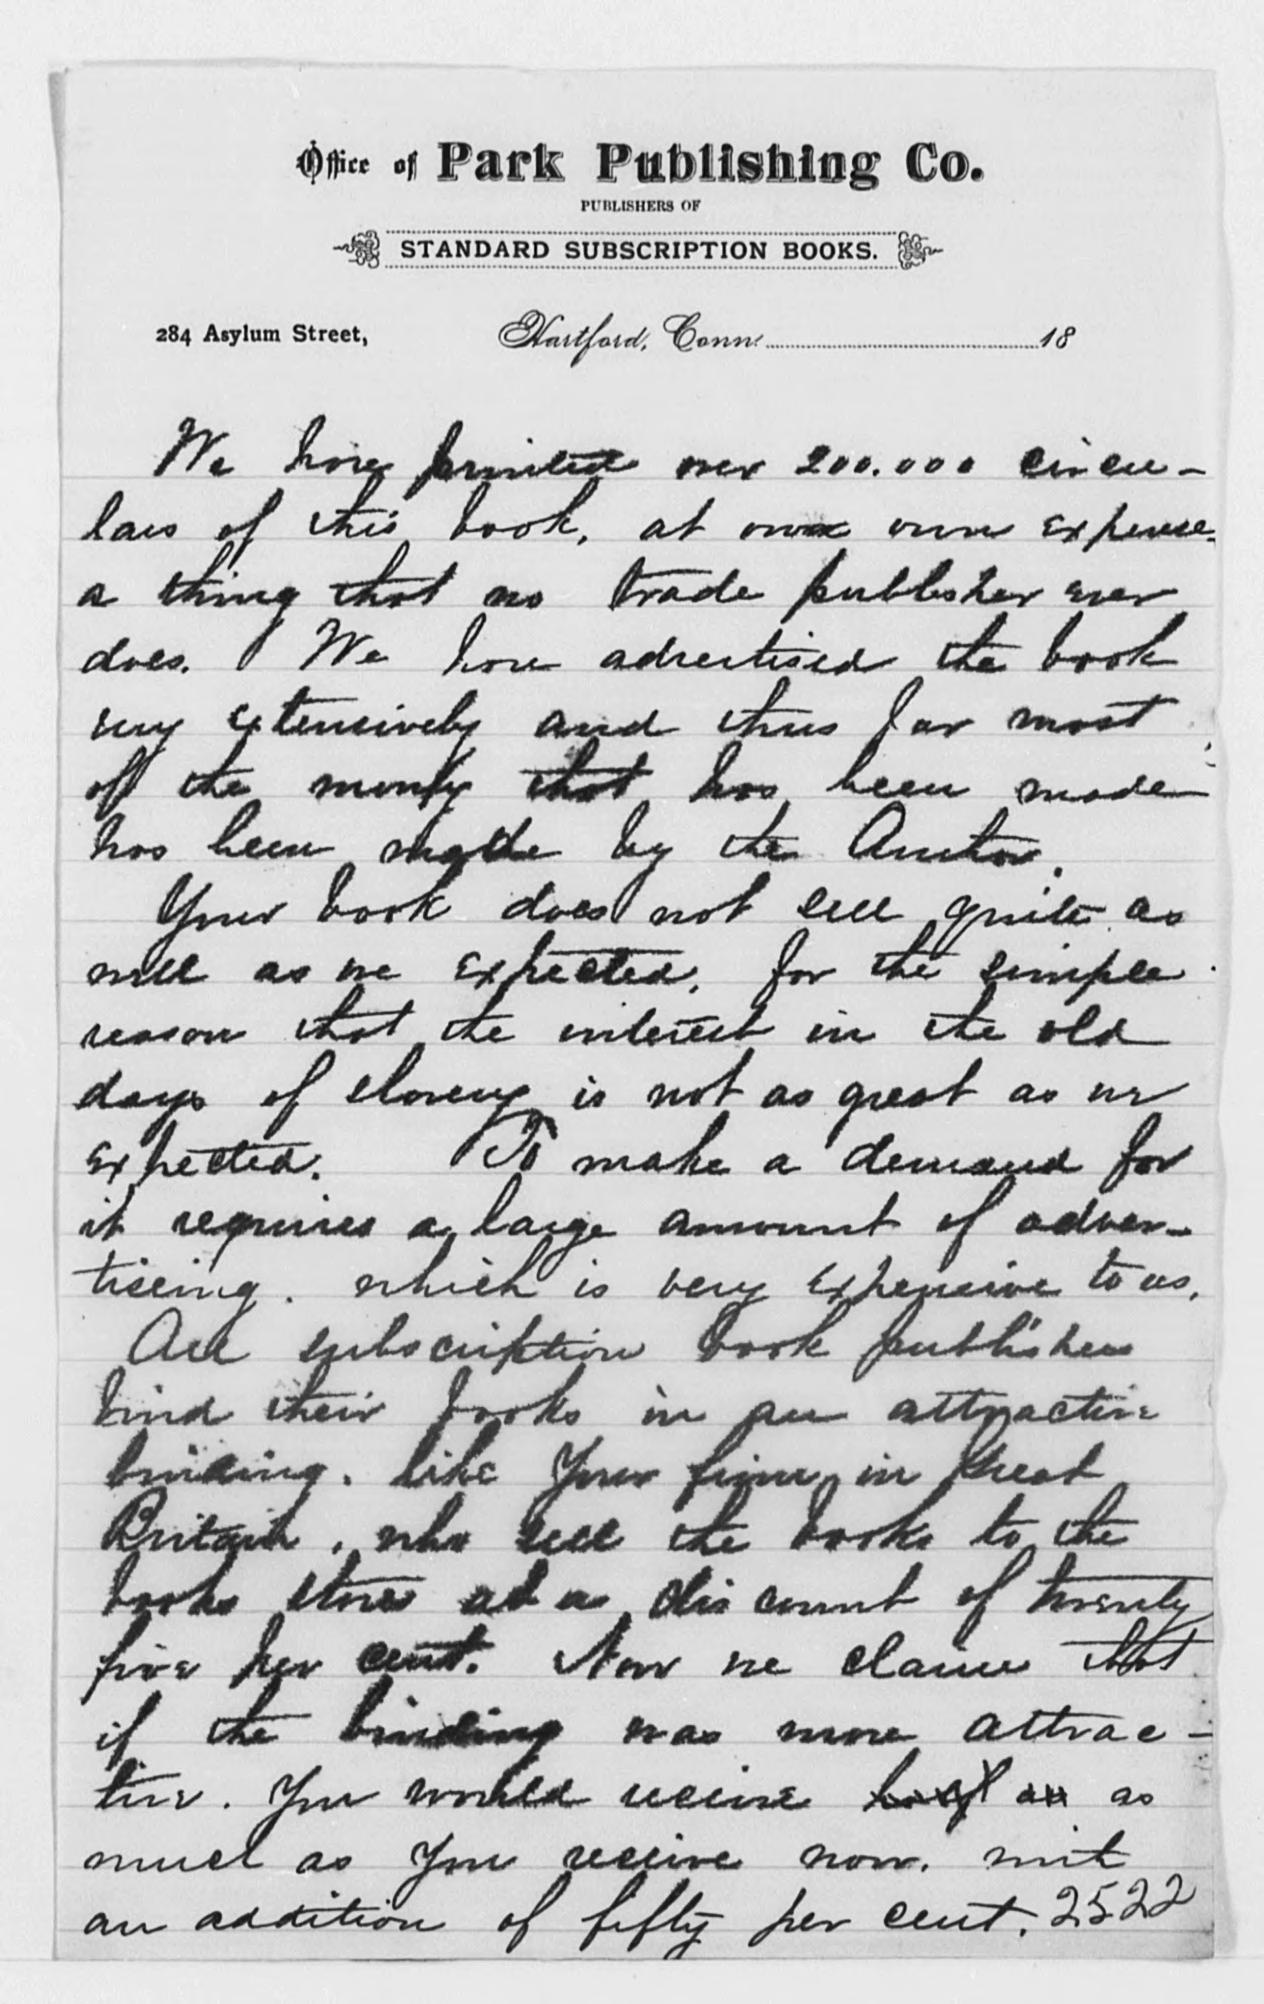 Office of Park Publishing Co.
PUBLISHERS OF
STANDARD SUBSCRIPTION BOOKS.
284 Asylum Street, Hartford, Conn. 18
We have printed over 200.000 circu-
lars of this book, at our own expense.
a thing that no trade publisher ever
does. We have advertised the book
very extensively and thus far most
of the money that has been made
has been made by the Author.
Your book does not sell quite as
well as we expected, for the simple
reason that the interest in the old
days of slavery is not as great as we
expected. To make a demand for
it requires a large amount of adver-
tiseing. which is very expensive to us.
All subscription book publishers
bind their books in an attractive
binding. like your firm in Great
Britain, who sell the books to the
books stores at a discount of twenty
five per cent. Now we claim that
if the binding was more attrac-
tive. You would receive half as as
much as you receive now. with
an addition of fifty per cent. 2522